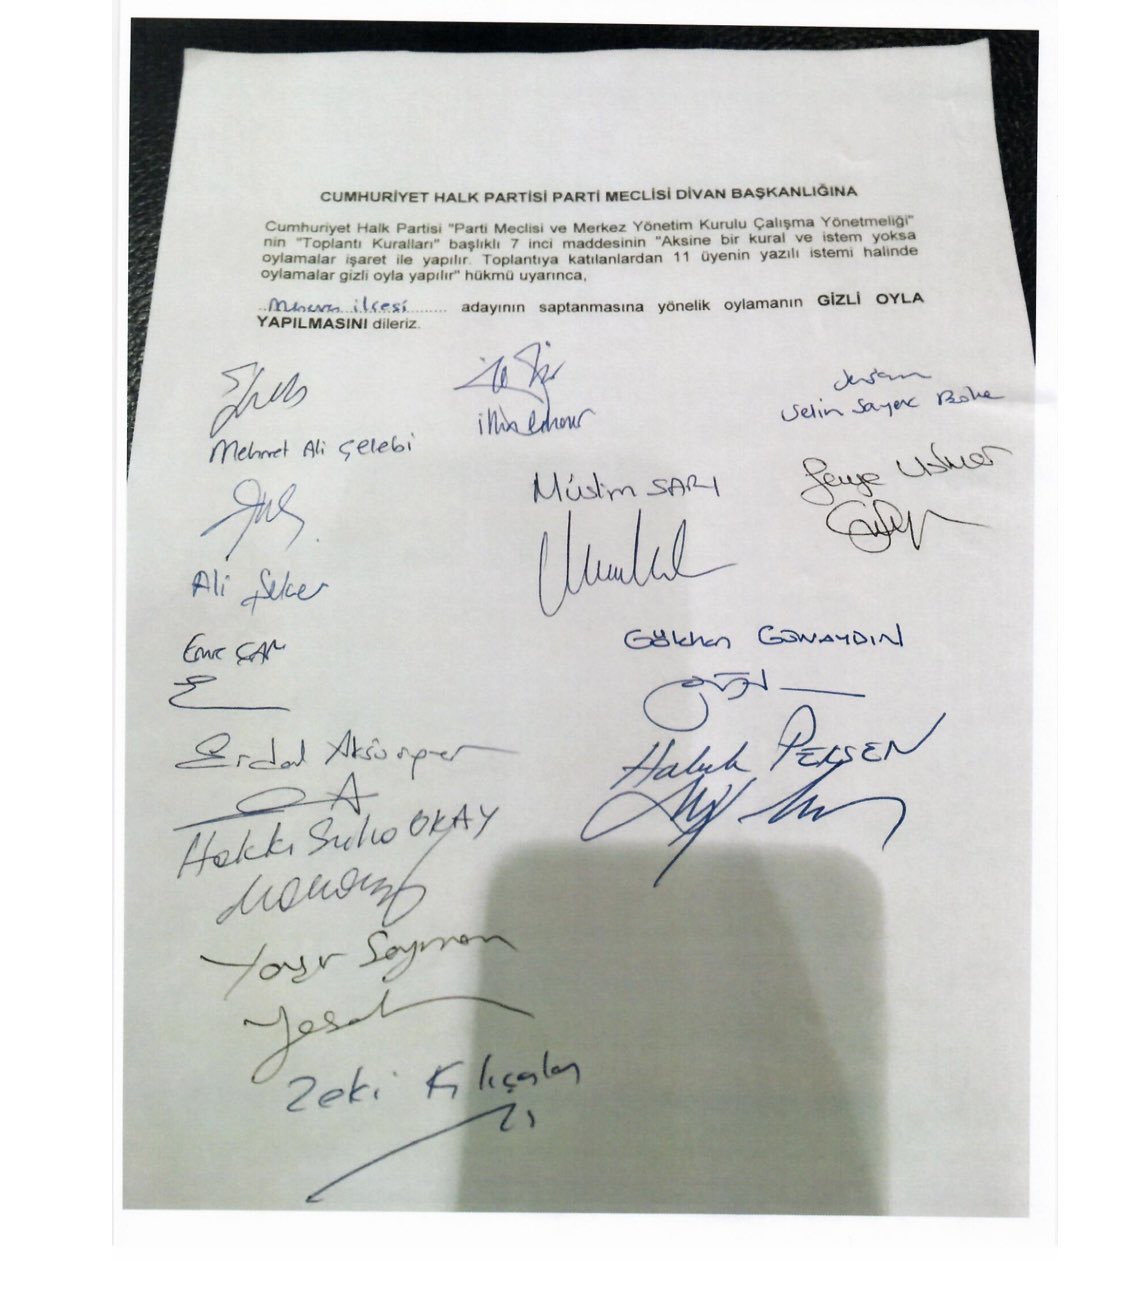 CUMHURİYET HALK PARTİSİ PARTİ MECLİSİ DİVAN BAŞKANLIĞINA
Cumhuriyet Halk Partisi "Parti Meclisi ve Merkez Yönetim Kurulu Çalışma Yönetmeliği"
nin "Toplantı Kuralları" başlıklı 7 inci maddesinin "Aksine bir kural ve istem yoksa
oylamalar işaret ile yapılır. Toplantıya katılanlardan 11 üyenin yazılı istemi halinde
oylamalar gizli oyla yapılır" hükmü uyarınca,
ilçesi adayının saptanmasına yönelik oylamanın GİZLİ OYLA
YAPILMASINI dileriz.
Mehmet Ali Çelebi
Selin Sayek Böke
Müslim SARI
Ali Şeker
Emre ÇAM
Gökhan GÜNAYDIN
Erdal Aksünger
Haluk PEKŞEN
Hakkı Suha OKAY
Yaşır Seyman
Zeki Kılıçaslan